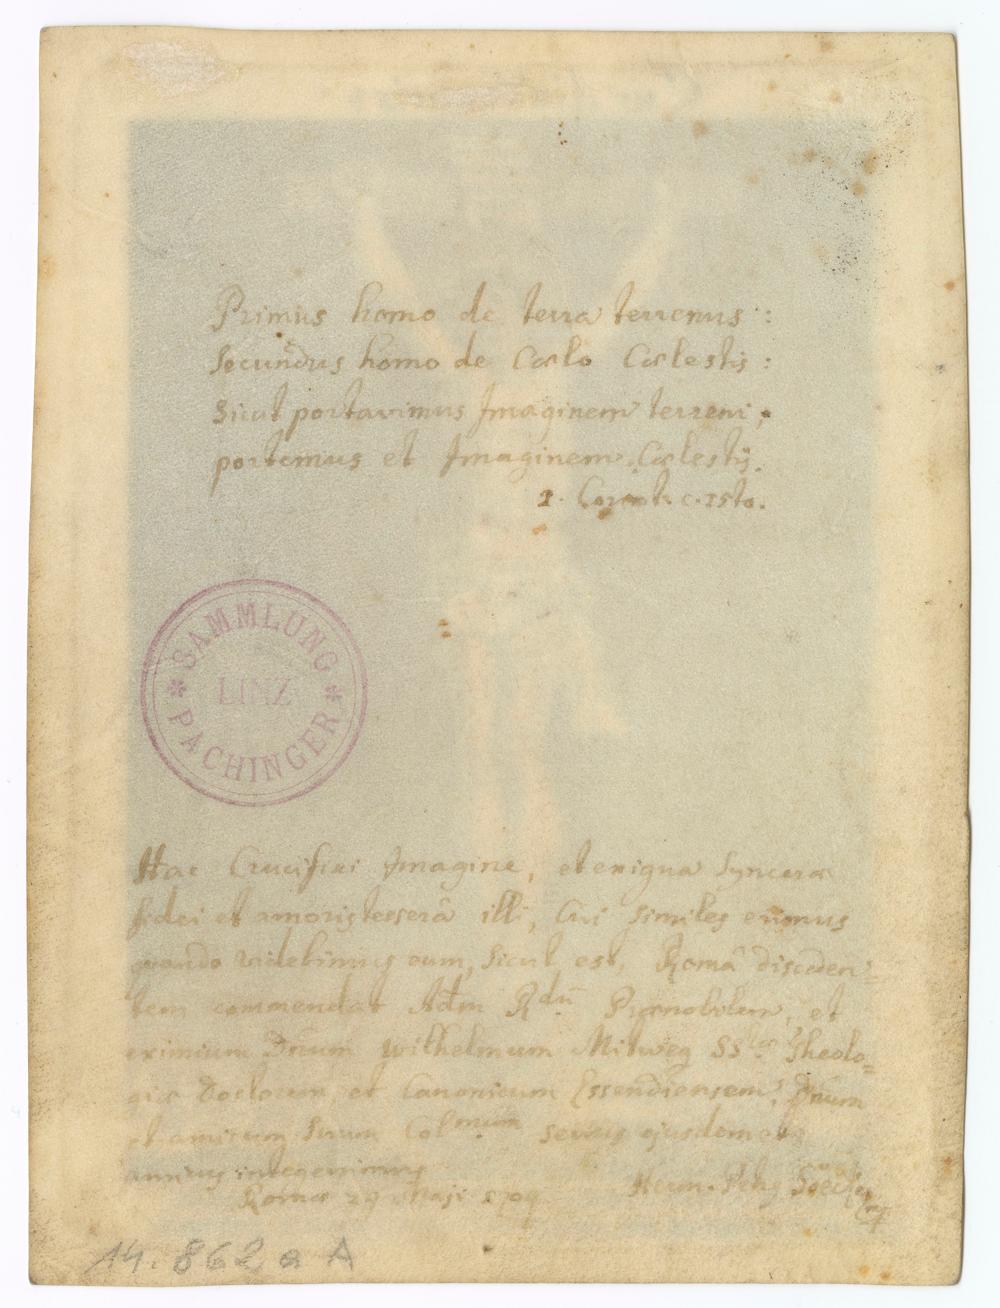 Primus homo de terra terrenus :
Secundus homo de Coelo Coelestis :
Sicut portavimus Imaginem terreni ;
portemus et Imaginem Coelestis.
1. Corinth. c. 15to.
SAMMLUNG
LINZ
PACHINGER
Hac Crucifixi Imagine, et exigua Syncera
fidei et amoris tesserâ illi, Cui Similes erimus
quando videbimus eum, Sicut est, Româ disceden=
tem commendat Adm Rdũ Praenobilem, et
eximium Dnum Wilhelmum Mitweg SS Theolo=
giae Doctorem, et Canonicum Essendiensem, Dnum
et amicum Suum Colmum servus ejusdem et
amicus integerrimus
Romae 29 Maji 1709
Herm.
14. 862 a A